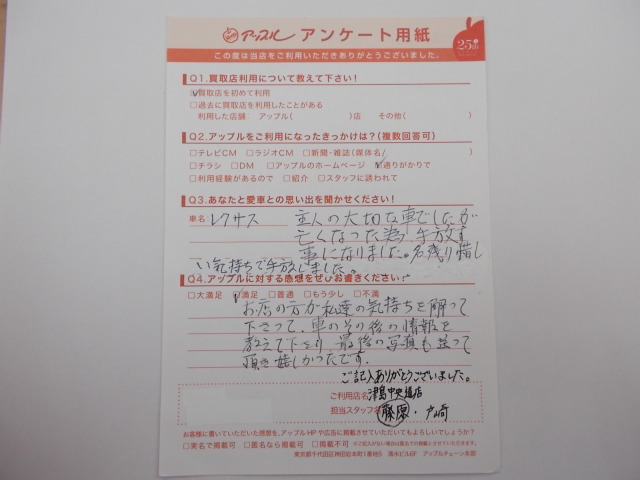 アップル アンケート用紙
25th
この度は当店をご利用いただきありがとうございました。
Q1.買取店利用について教えて下さい！
☑買取店を初めて利用
□過去に買取店を利用したことがある
利用した店舗： アップル( )店 その他( )
Q2.アップルをご利用になったきっかけは？(複数回答可)
□テレビCM □ラジオCM □新聞・雑誌(媒体名/ )
□チラシ □DM □アップルのホームページ ☑通りがかりで
□利用経験があるので □紹介 □スタッフに誘われて
Q3.あなたと愛車との思い出を聞かせてください！
車名：レクサス 主人の大切な車でしたが
亡くなった為、手放す
事になりました。名残り惜し
い気持ちで手放しました。
Q4.アップルに対する感想をぜひお書きください！
□大満足 ☑満足 □普通 □もう少し □不満
お店の方が私達の気持ちを解って
下さって、車のその後の情報を
教えて下さり、最後の写真も送って
頂き嬉しかったです。
ご記入ありがとうございました。
ご利用店名 津島中央通店
担当スタッフ名 藤原・戸崎
お客様に書いていただいた感想を、アップルHPや広告に掲載させていただいてもよろしいでしょうか？
□実名で掲載可 □匿名なら掲載可 □掲載不可 ※ご記入がない場合は匿名での掲載とさせていただきます。
東京都千代田区神田岩本町1番地5 清水ビル6F アップルチェーン本部